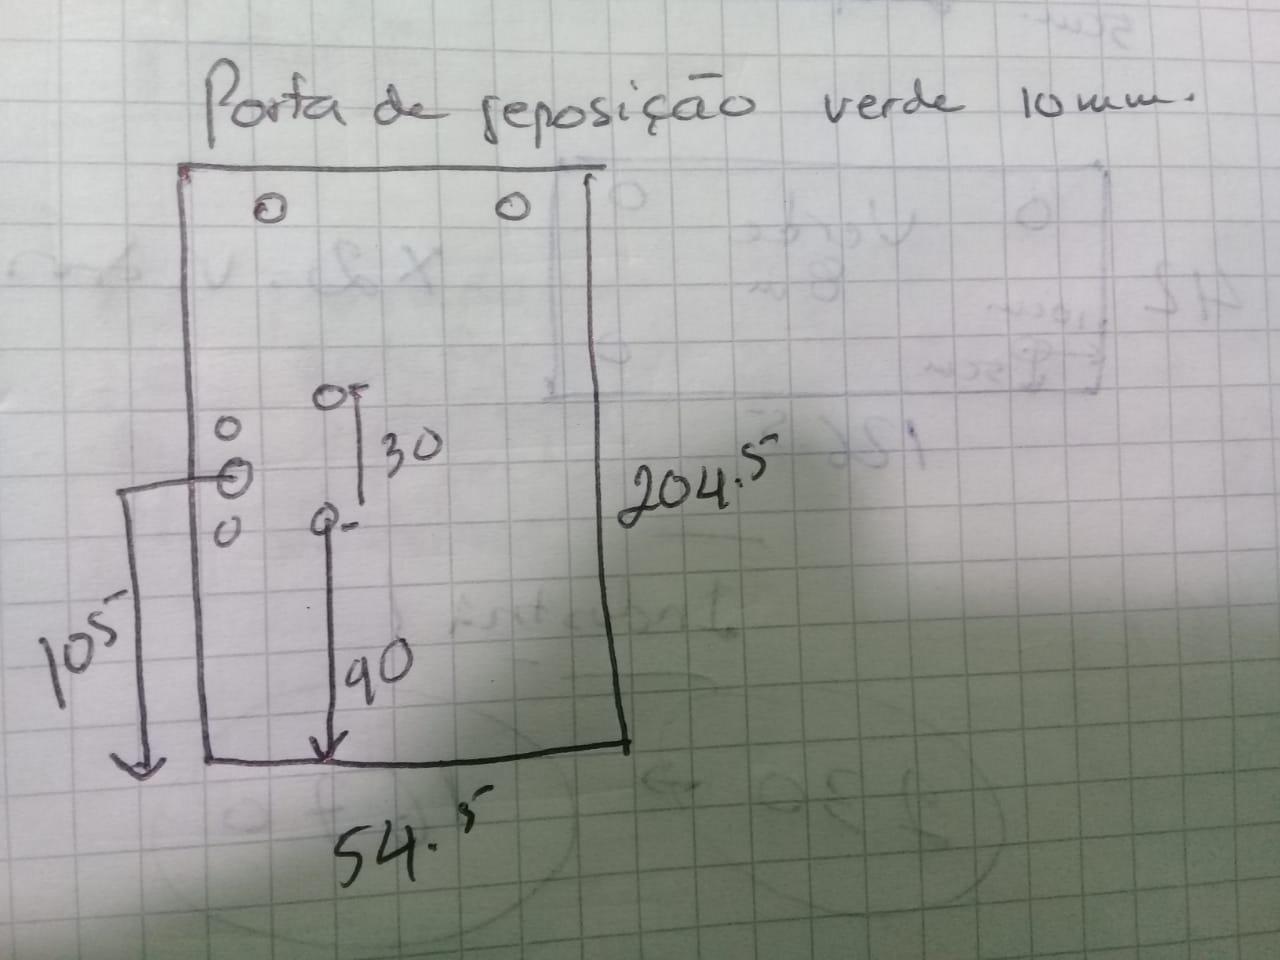 Porta de reposição verde 10mm.
30
204.5
105
90
54.5